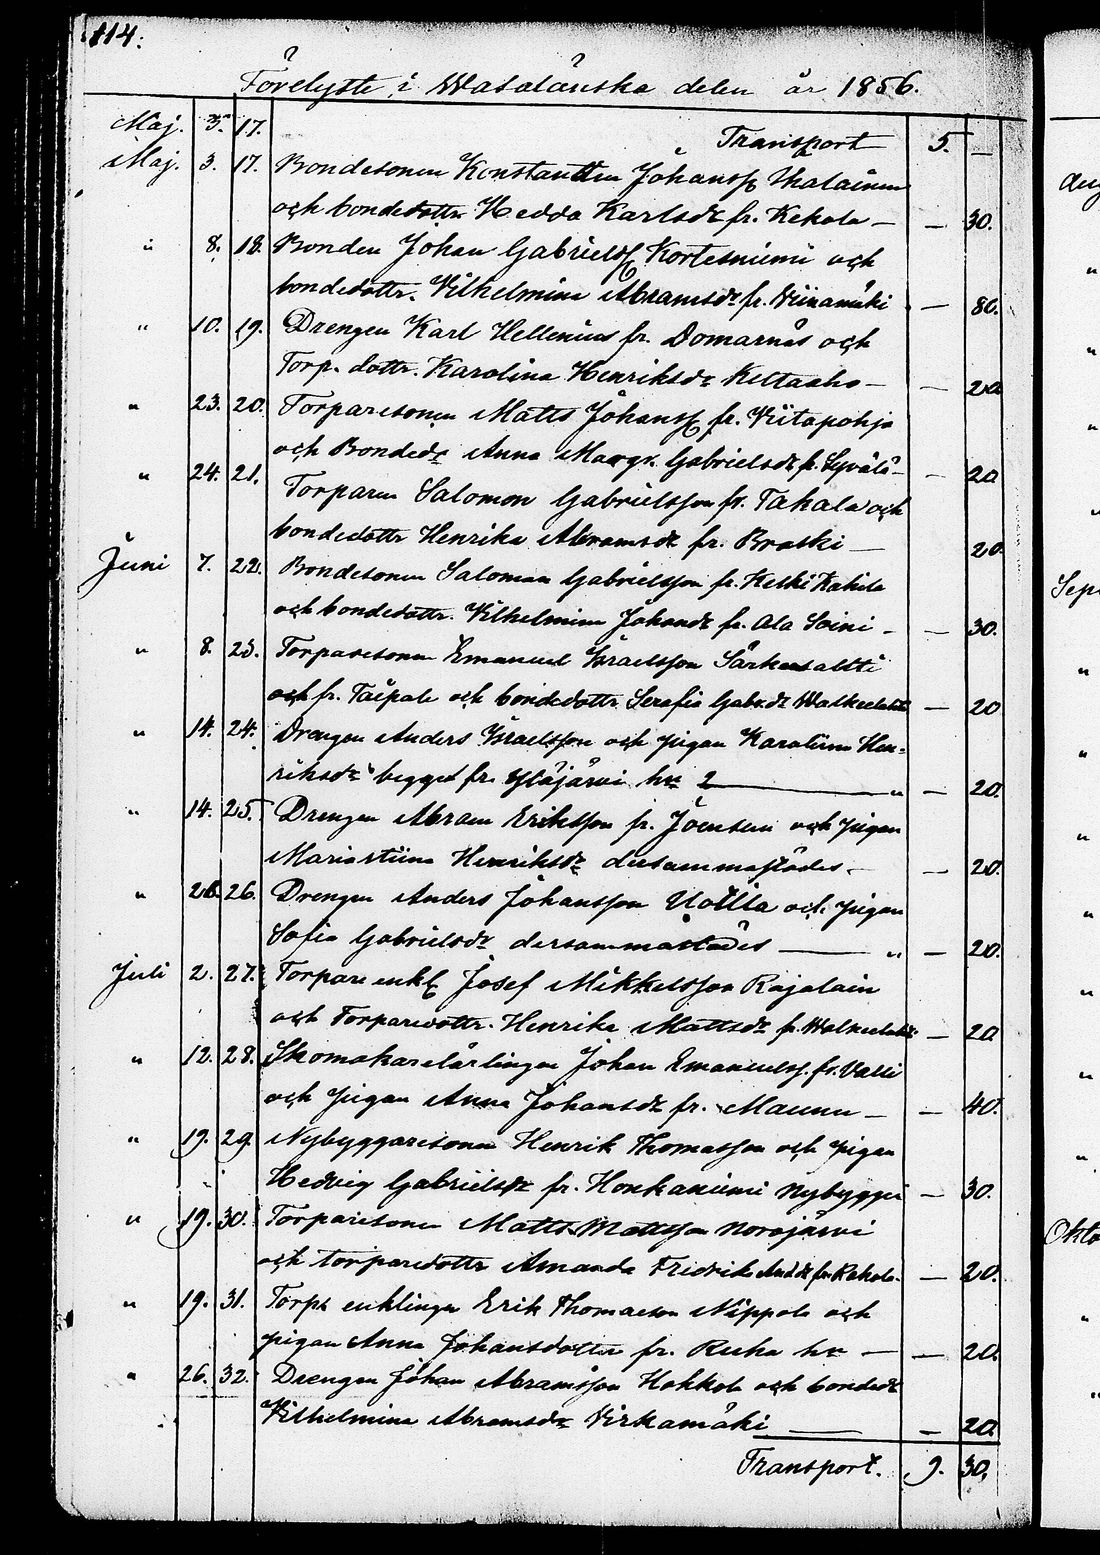 114.
Förelyste i Wasalänska delen år 1856.
Maj. 3. 17. Transport 5. —
Maj. 3. 17. Bondesonen Konstantin Johanss Ihalainen
och bondedottr. Hedda Karlsdr fr. Kekola — — 30.
" 8. 18. Bonden Johan Gabrielss Kortesniemi och
bondedottr. Vilhelmina Abramsdr fr. Viinamäki — 80.
" 10. 19. Drengen Karl Hellenius fr. Domarnäs och
Torp. dottr. Karolina Henriksdr Keltaaho — — 20
" 23. 20. Torparesonen Matts Johanss fr. Viitapohja
och Bondedr Anna Margr. Gabrielsdr fr. Syvälä — — 20
" 24. 21. Torparen Salomon Gabrielsson fr. Takala och
bondedottr Henrika Abramsdr fr. Braski — 20.
Juni 7. 22. Bondesonen Saloman Gabrielsson fr. Keski Kahila
och bondedottr. Vilhelmina Johansdr fr. Ala Soini — — 30.
" 8. 23. Torparesonen Emanuel Israelsson Särkensaltti
och fr. Taipale och bondedottr Serafia Gabrdr — 20
" 14. 24. Drengen Anders Israelsson och pigan Karoliina Hen-
riksdr begge fr. Ylijärvi hn 2 " — 20.
" 14. 25. Drengen Abram Eriksson fr. Joensuu och pigan
Mariastiina Henriksdr dersammastädes — — 20.
" 26. 26. Drengen Anders Johansson Uotila och pigan
Sofia Gabrielsdr dersammastädes — " — 20.
Juli 2. 27. Torpare enkl Josef Mikkelsson Rajalain
och Torparedottr. Henrika Mattsdr fr. — 20
" 12. 28. Skomakarelärlingen Johan Emanuelss. fr. Valli
och pigan Anna Johansdr fr. Maunu — — 40.
" 19. 29. Nybyggaresonen Henrik Thomasson och pigan
Hedvig Gabrielsdr fr. Honkaniemi nybygge — 30.
" 19. 30. Torparesonen Matts Mattsson Norojärvi
och torparedottr Amanda Fredrika Andsdr fr. Kekola — 20.
" 19. 31. Torp: enklingen Erik Thomasson Nippola och
pigan Anna Johansdotter fr. Ruha hn — — 20.
" 26. 32. Drengen Johan Abramsson Hokkola och bondedr
Vilhelmina Abramsdr Virkamäki — — 20.
Transport. 9. 30.
Aug
Sept
Okto